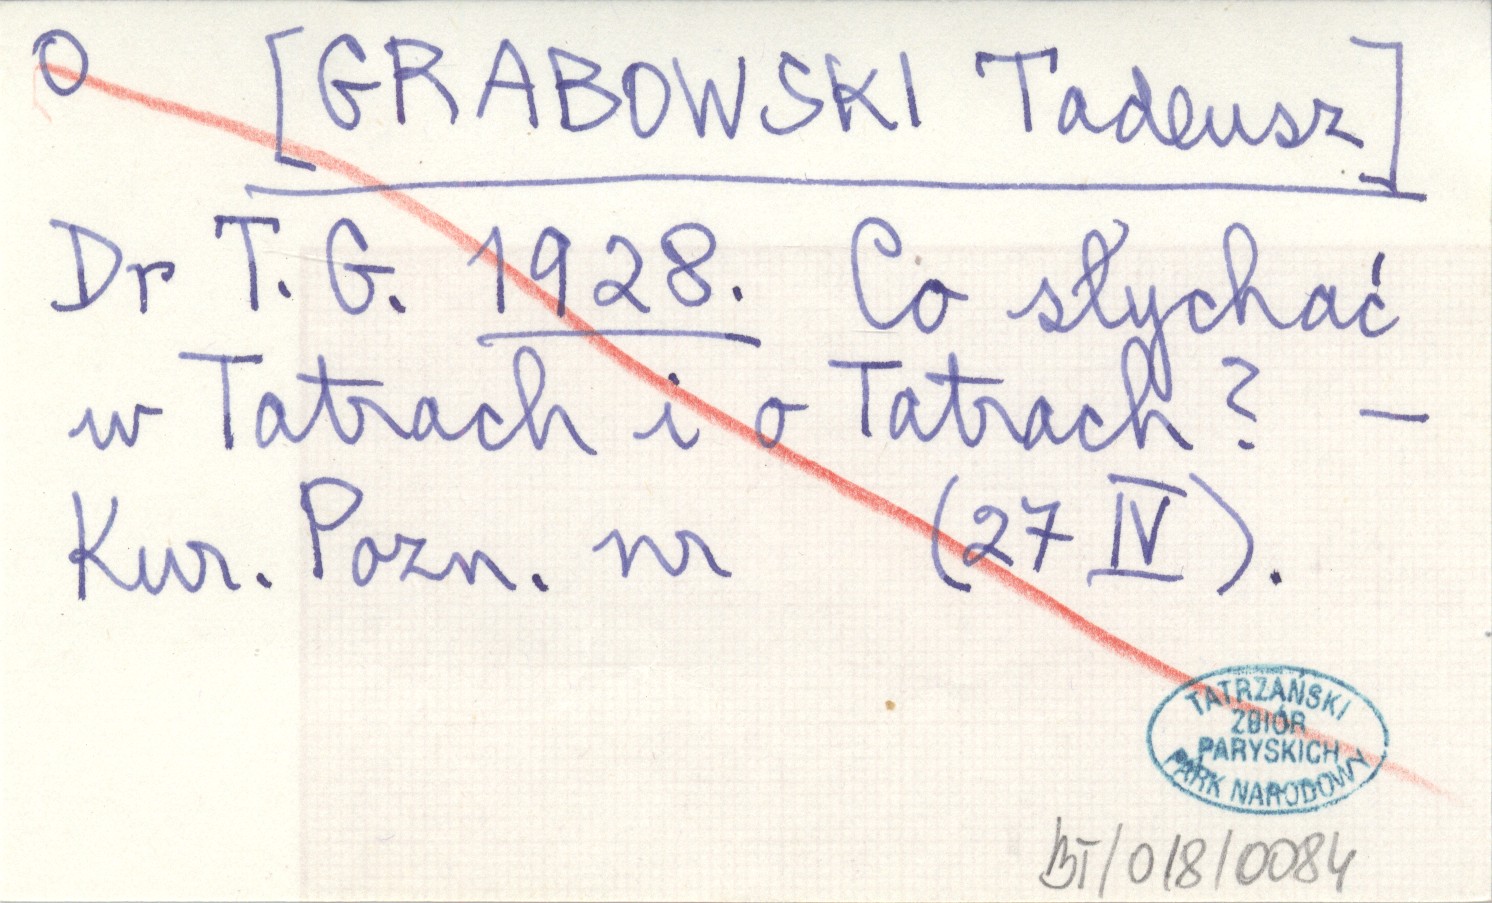 O [GRABOWSKI Tadeusz]
Dr T. G. 1928. Co słychać
w Tatrach i o Tatrach? —
Kur. Pozn. nr (27 IV).
TATRZAŃSKI
ZBIÓR
PARYSKICH
PARK NARODOWY
BT/018/0084